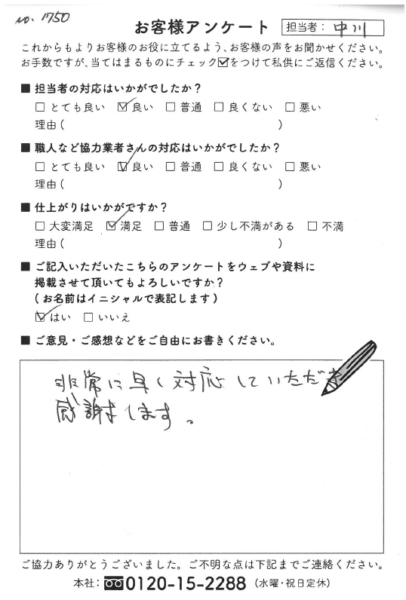 no. 1750
お客様アンケート 担当者：中川
これからもよりお客様のお役に立てるよう、お客様の声をお聞かせください。
お手数ですが、当てはまるものにチェック☑をつけて私供にご返信ください。
■ 担当者の対応はいかがでしたか？
□ とても良い ☑ 良い □ 普通 □ 良くない □ 悪い
理由（ ）
■ 職人など協力業者さんの対応はいかがでしたか？
□ とても良い ☑ 良い □ 普通 □ 良くない □ 悪い
理由（ ）
■ 仕上がりはいかがですか？
□ 大変満足 ☑ 満足 □ 普通 □ 少し不満がある □ 不満
理由（ ）
■ ご記入いただいたこちらのアンケートをウェブや資料に
掲載させて頂いてもよろしいですか？
（お名前はイニシャルで表記します）
☑ はい □ いいえ
■ ご意見・ご感想などをご自由にお書きください。
非常に早く対応していただき
感謝します。
ご協力ありがとうございました。ご不明な点は下記までご連絡ください。
本社：0120-15-2288（水曜・祝日定休）